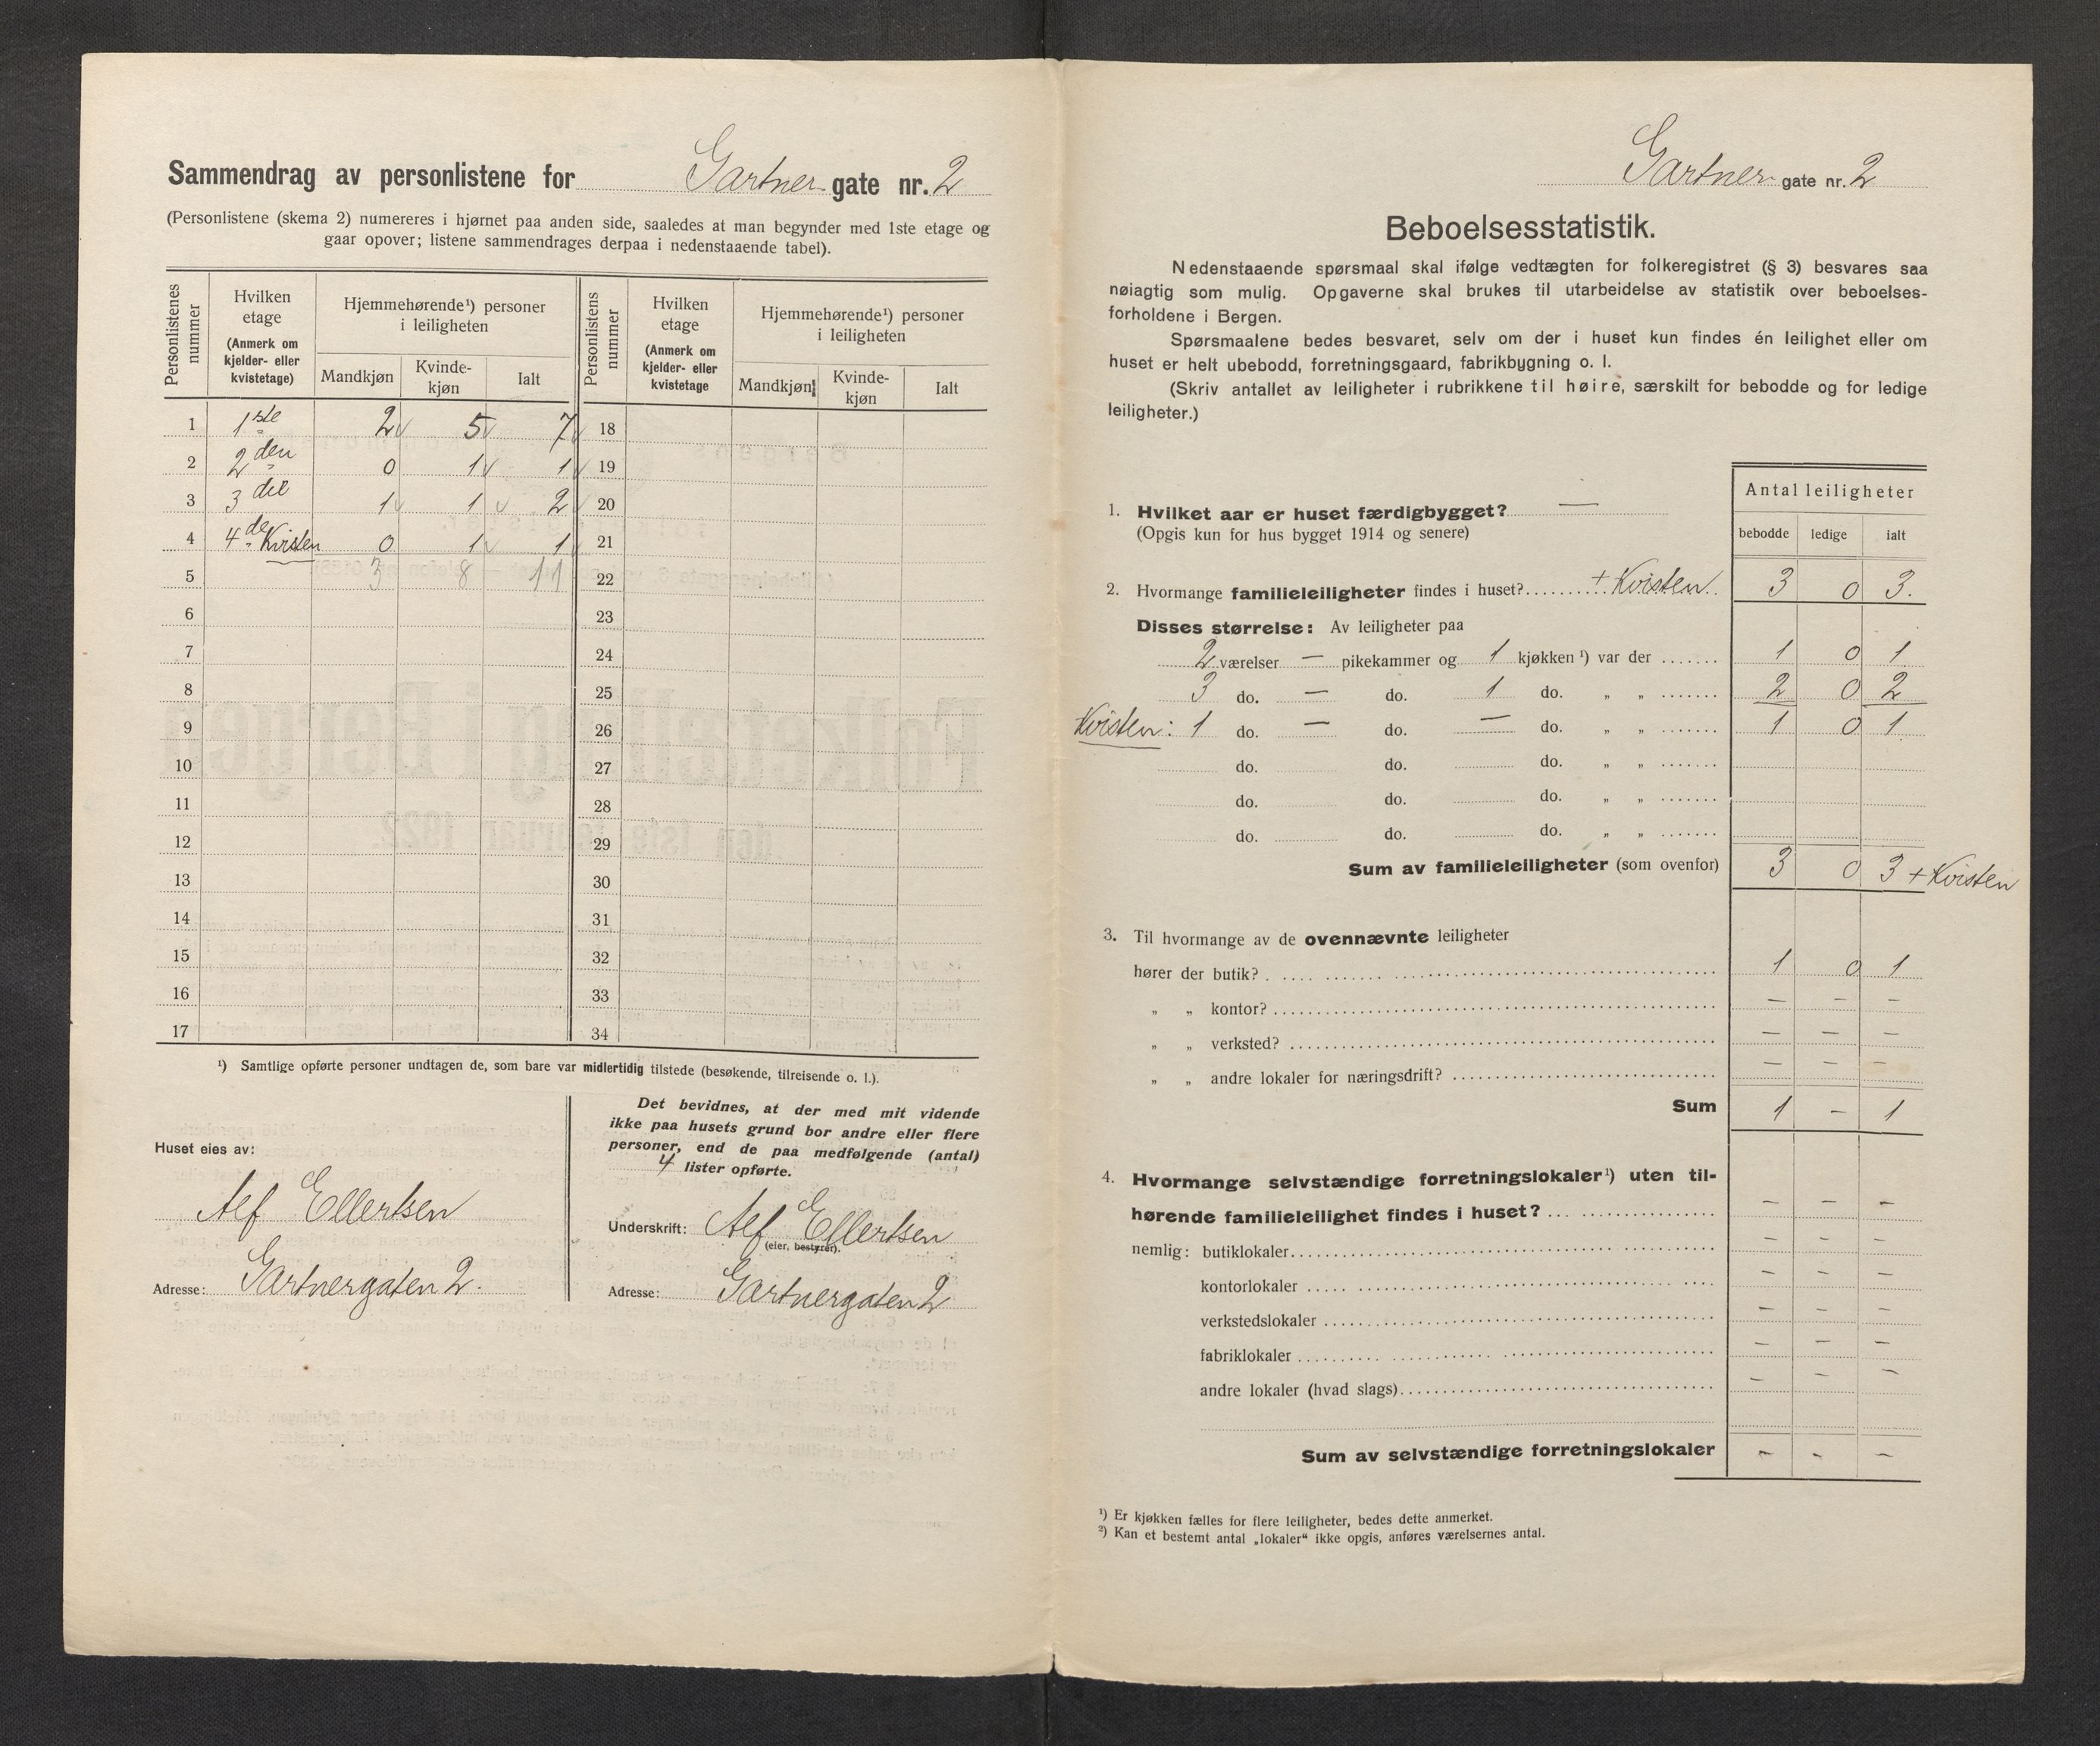 Sammendrag av personlistene for Gartner gate nr. 2
(Personlistene (skema 2) numereres i hjørnet paa anden side, saaledes at man begynder med 1ste etage og
gaar opover; listene sammendrages derpaa i nedenstaaende tabel).
Personlistenes nummer | Hvilken etage (Anmerk om kjelder- eller kvistetage) | Hjemmehørende¹) personer i leiligheten | Mandkjøn | Kvinde-kjøn | Ialt
1 1ste 2 5 7
2 2den 0 1 1
3 3die 1 1 2
4 4de Kvisten 0 1 1
5 3 8 11
6
7
8
9
10
11
12
13
14
15
16
17
Personlistens nummer | Hvilken etage (Anmerk om kjelder- eller kvistetage | Hjemmehørende¹) personer i leiligheten | Mandkjøn | Kvinde-kjøn | Ialt
18
19
20
21
22
23
24
25
26
27
28
29
30
31
32
33
34
¹) Samtlige opførte personer undtagen de, som bare var midlertidig tilstede (besøkende, tilreisende o. l.).
Huset eies av:
Alf Ellertsen
Adresse: Gartnergaten 2.
Det bevidnes, at der med mit vidende
ikke paa husets grund bor andre eller flere
personer, end de paa medfølgende (antal)
4 lister opførte.
Underskrift: Alf Ellertsen
(eier, bestyrer).
Adresse: Gartnergaten 2
Gartner gate nr. 2
Beboelsesstatistik.
Nedenstaaende spørsmaal skal ifølge vedtægten for folkeregistret (§ 3) besvares saa
nøiagtig som mulig. Opgaverne skal brukes til utarbeidelse av statistik over beboelses-
forholdene i Bergen.
Spørsmaalene bedes besvaret, selv om der i huset kun findes én leilighet eller om
huset er helt ubebodd, forretningsgaard, fabrikbygning o. l.
(Skriv antallet av leiligheter i rubrikkene til høire, særskilt for bebodde og for ledige
leiligheter.)
Antal leiligheter
bebodde ledige ialt
1. Hvilket aar er huset færdigbygget? —
(Opgis kun for hus bygget 1914 og senere)
2. Hvormange familieleiligheter findes i huset? + Kvisten. 3 0 3.
Disses størrelse: Av leiligheter paa
2 værelser — pikekammer og 1 kjøkken ¹) var der 1 0 1
3 do. — do. 1 do. „ „ 2 0 2
Kvisten: 1 do. — do. — do. „ „ 1 0 1
do. do. do. „ „
do. do. do. „ „
do. do. do. „ „
Sum av familieleiligheter (som ovenfor) 3 0 3 + Kvisten
3. Til hvormange av de ovennævnte leiligheter
hører der butik? 1 0 1
„ „ kontor? — — —
„ „ verksted? — — —
„ „ andre lokaler for næringsdrift? — — —
Sum 1 — 1
4. Hvormange selvstændige forretningslokaler¹) uten til-
hørende familieleilighet findes i huset? — — —
nemlig: butiklokaler — — —
kontorlokaler — — —
verkstedslokaler — — —
fabriklokaler — — —
andre lokaler (hvad slags) — — —
Sum av selvstændige forretningslokaler — — —
¹) Er kjøkken fælles for flere leiligheter, bedes dette anmerket.
²) Kan et bestemt antal „lokaler“ ikke opgis, anføres værelsernes antal.